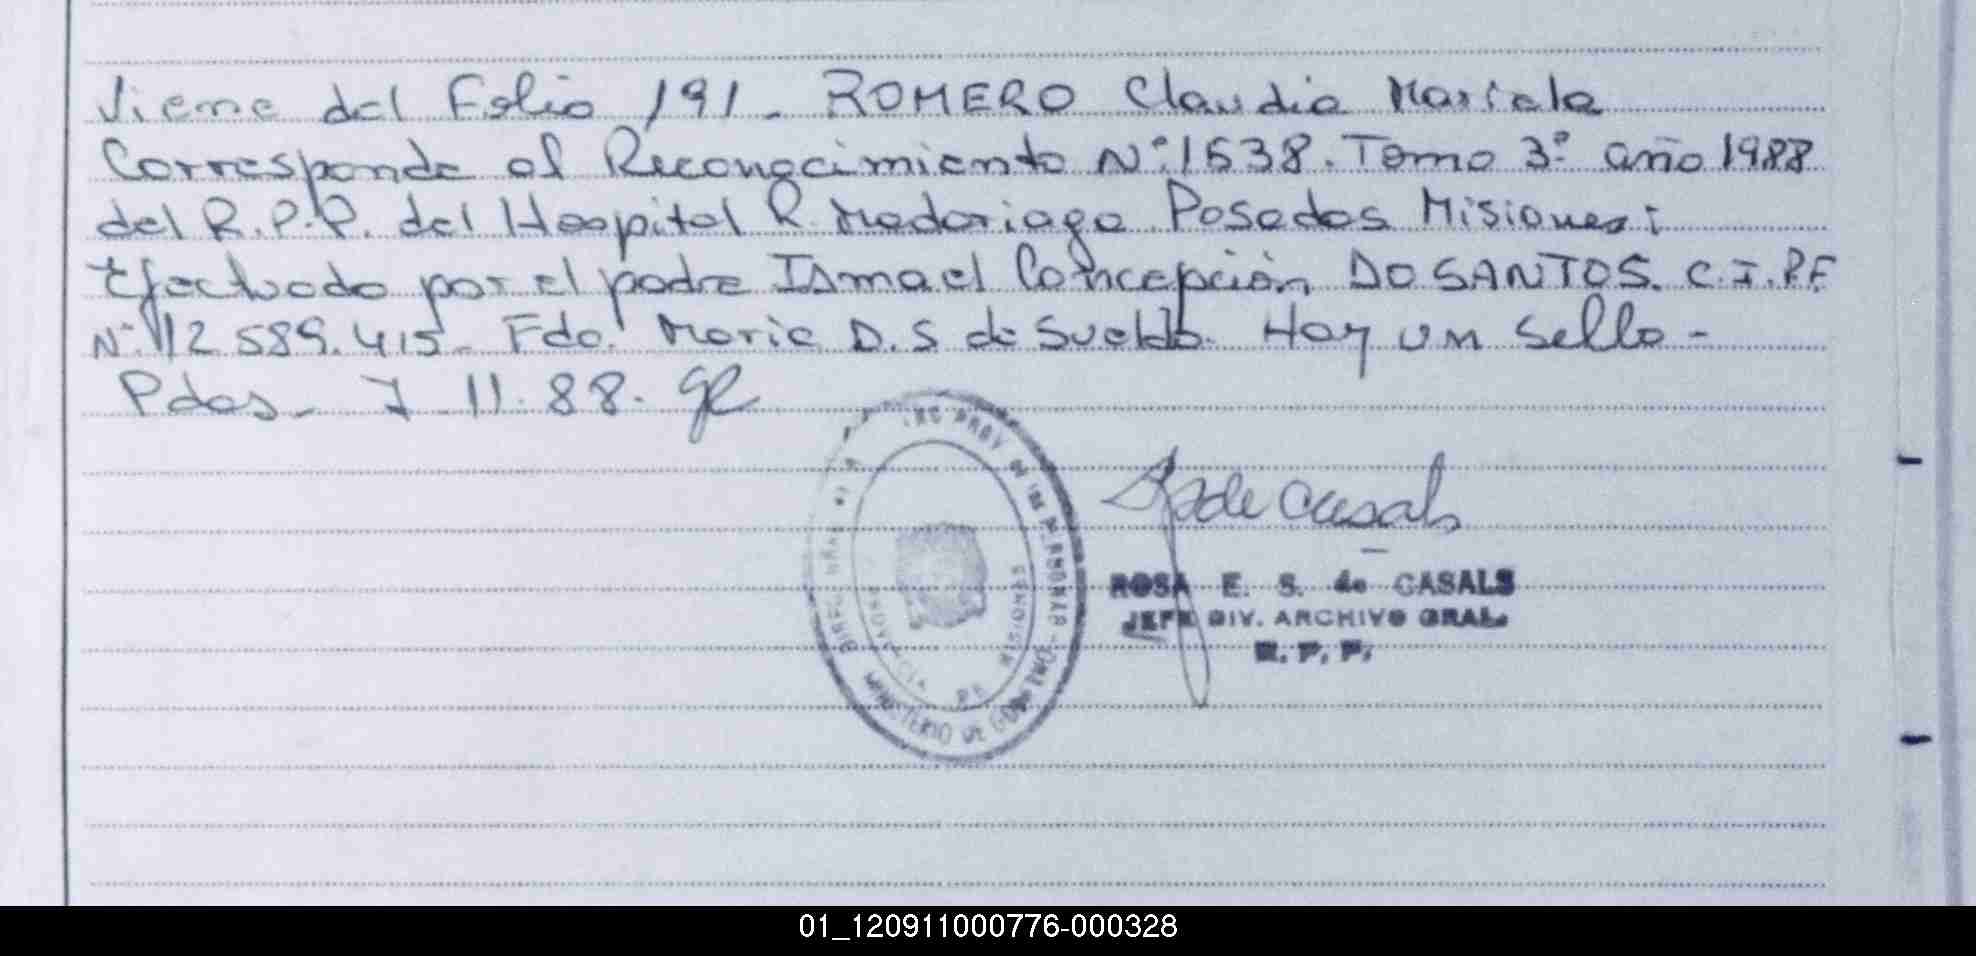 Viene del Folio 191 - ROMERO Claudia Mariela
Corresponde al Reconocimiento Nº 1538. Tomo 3º año 1988
del R.P.P. del Hospital R. Madariaga Posadas Misiones;
Efectuado por el padre Ismael Concepción DO SANTOS. C.I.P.F.
Nº 12.589.415 - Fdo. Maria D.S de Sueldo. Hay un sello -
Pdas - 7 11.88.
de Casals
ROSA E. S. de CASALS
JEFE DIV. ARCHIVO GRAL.
R. P. P.
PROV DE LAS PERSONAS
MINISTERIO DE
MISIONES
01_120911000776-000328